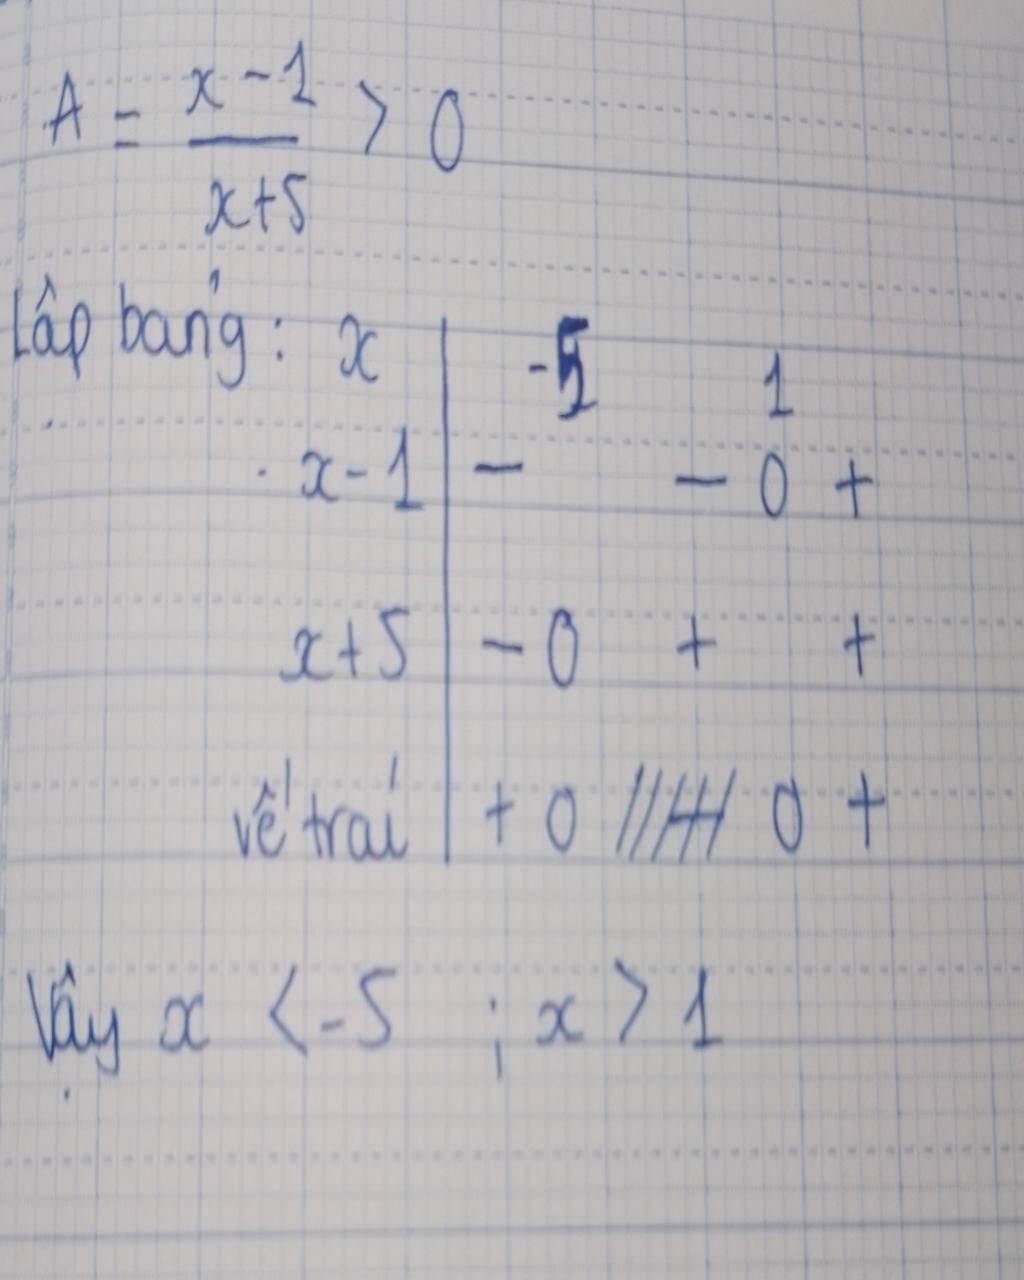 A = x - 1 / x + 5 > 0
Lập bảng: x | -5 1
x - 1 | - - 0 +
x + 5 | - 0 + +
vế trái | + 0 ////// 0 +
Vậy x < -5 ; x > 1